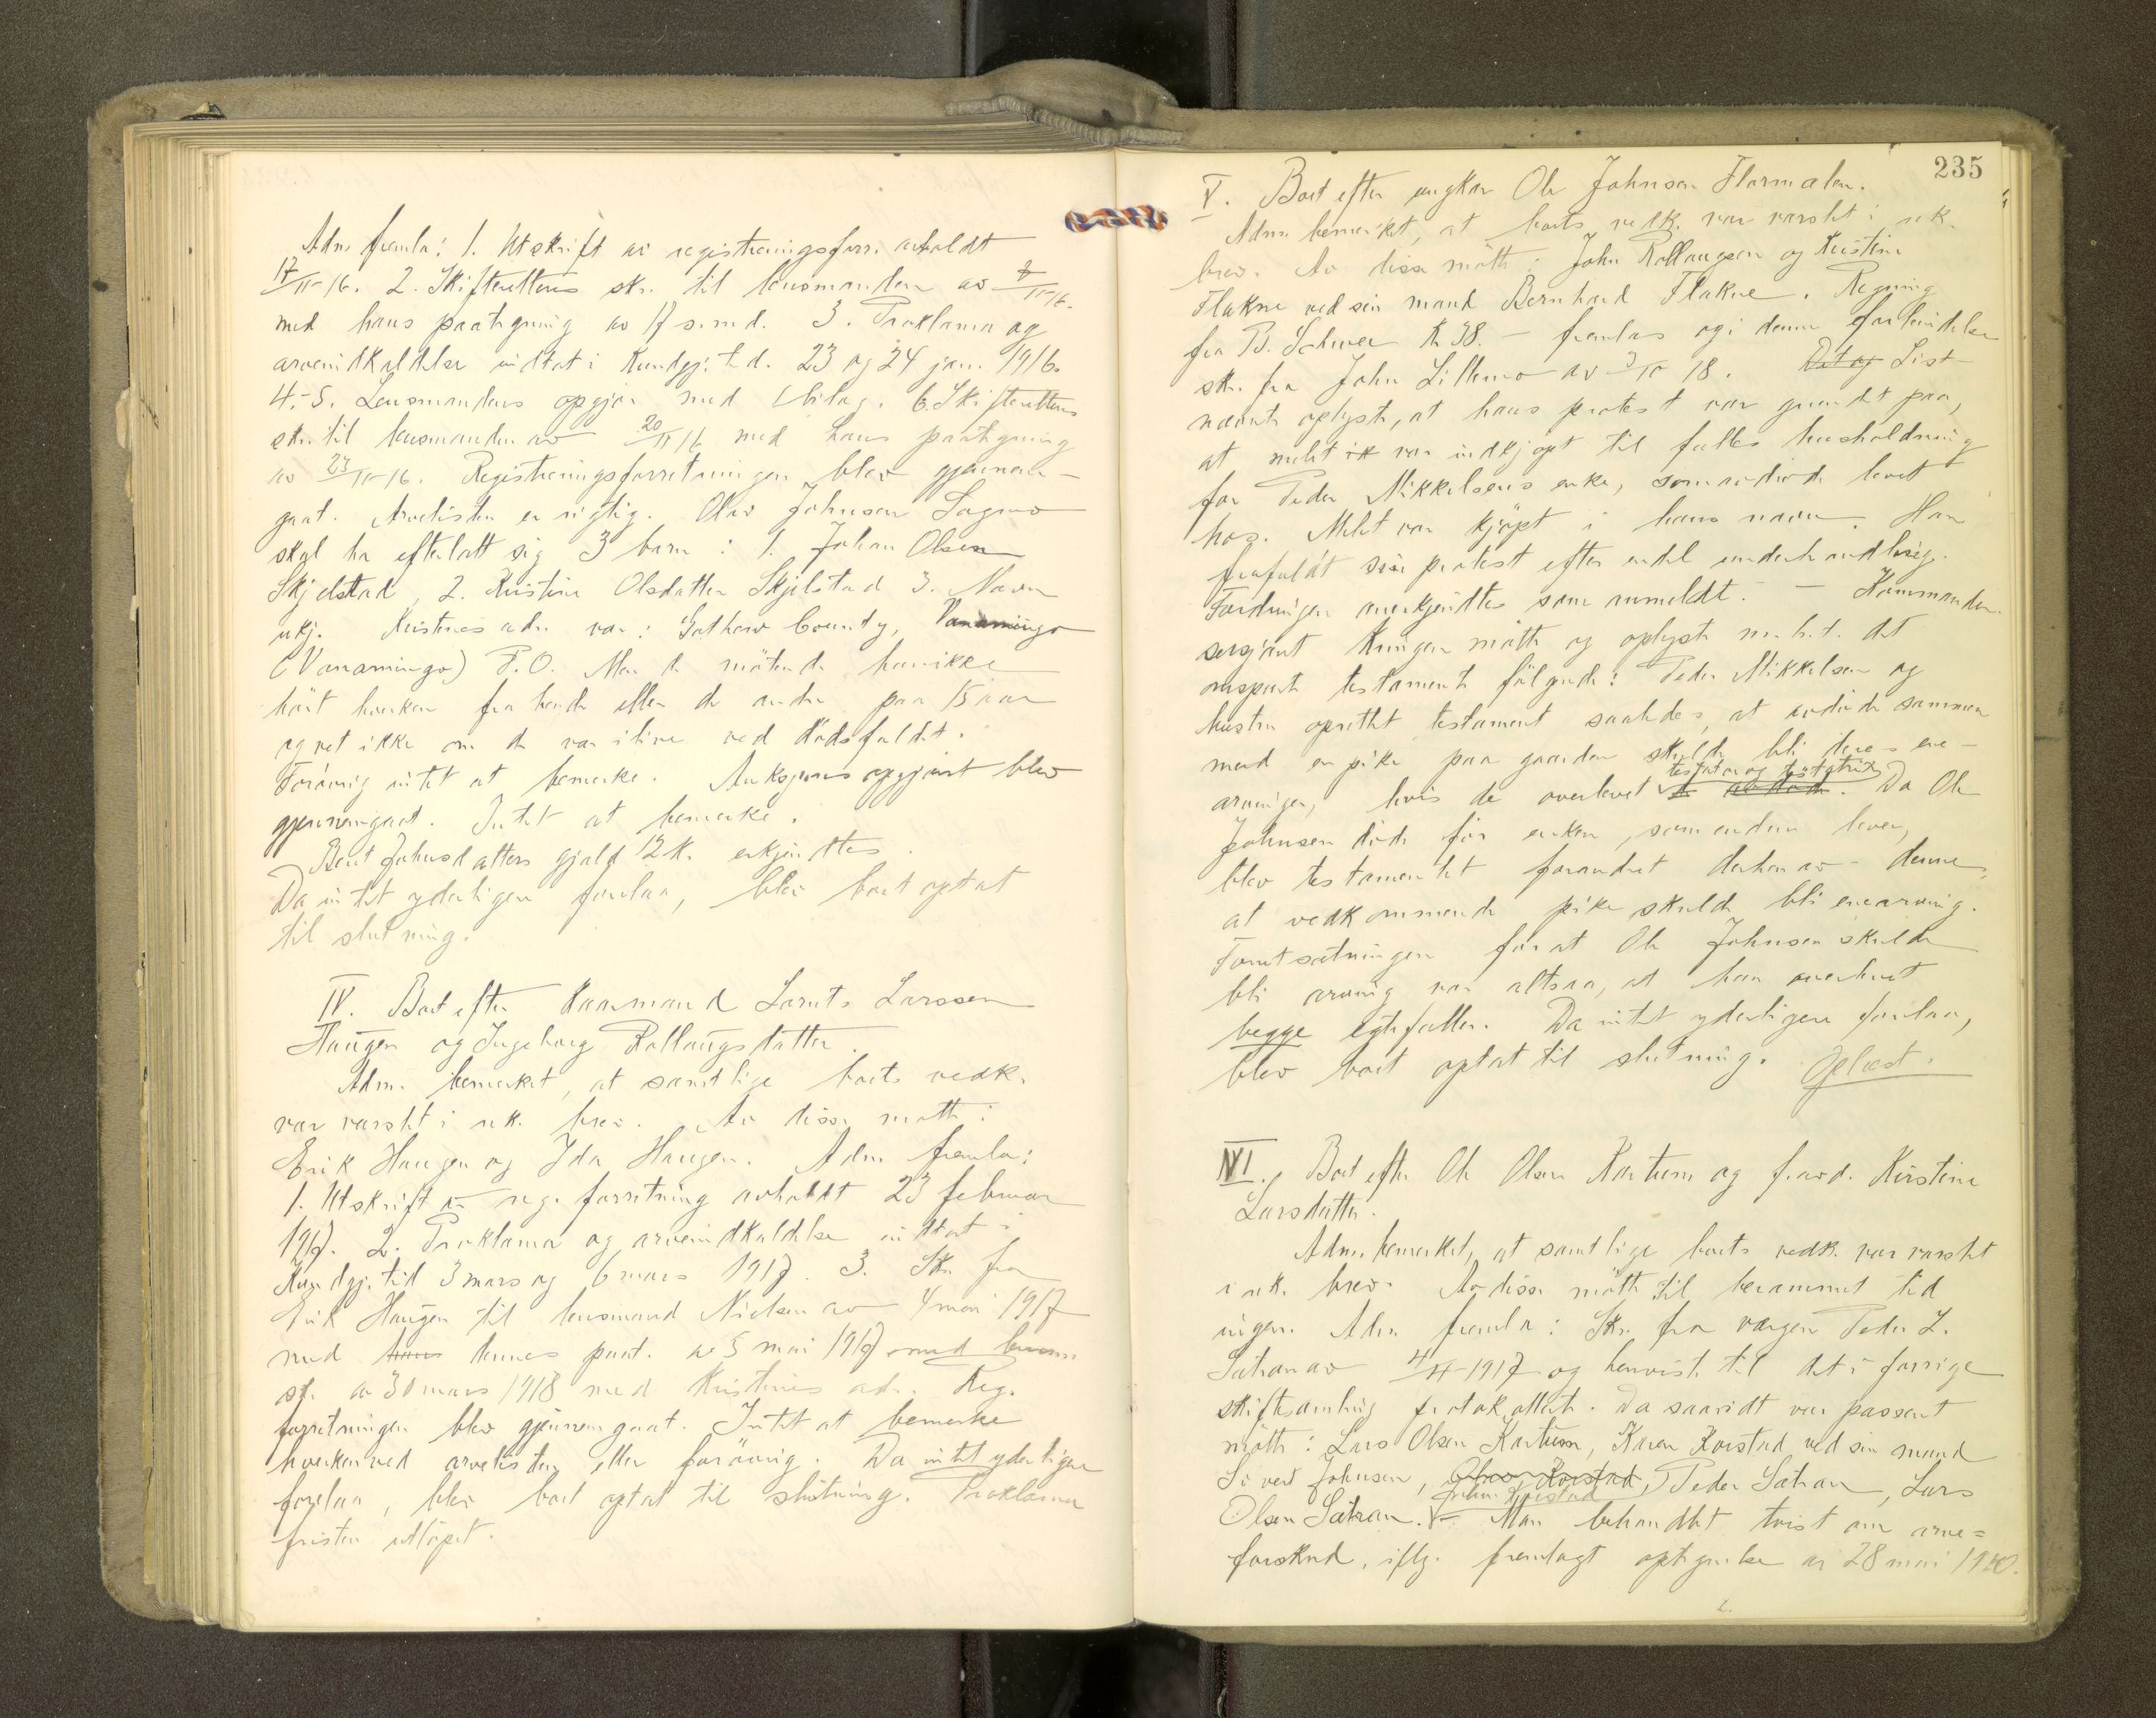 Adm. fremla: 1. Utskrift av registreringsforr. avholdt
17/11-16. 2. Skifterettens skr. til lensmanden av 8/11-16.
med hans paategning av 17 s.md. 3. Proklama og
arveindkaldelse indtat i Kundgj.tid. 23 og 24 jan. 1916.
4.-5. Lensmandens opgjör med 1 bilag. 6. Skifterettens
skr. til lensmanden av 20/11 16 med hans paategning
av 23/11-16. Registreringsforretningen blev gjennem-
gaat. Arvelisten er rigtig. Olav Johnsen Sagmo
skal ha efterlatt sig 3 barn: 1. Johan Olsen
Skjelstad, 2. Kristine Olsdatter Skjelstad 3. Navn
ukj. Kristines adr. var: Gothew County, Vanamingo
(Vanamingo) P.O. Men de mötende har ikke
hört hverken fra hende eller de andre paa 15 aar
og vet ikke om de var ilive ved dödsfaldet.
Forövrig intet at bemerke. Auksjonsopgjöret blev
gjennemgaat. Intet at bemerke.
Berit Johnsdatters gjæld 12 kr. erkjendtes.
Da intet yderligere forelaa, blev boet optat
til slutning.
IV. Boet efter kaarmand Lornts Larssen
Haugen og Ingeborg Rollaugsdatter.
Adm. bemerket, at samtlige boets vedk.
var varslet i rek. brev. Av disse mötte:
Erik Haugen og Ida Haugen. Adm. fremla:
1. Utskrift av reg. forretning avholdt 23 februar
1917. 2. Proklama og arveindkaldelse indtat i
Kundgj.tid 3 mars og 6 mars 1917. 3. Skr. fra
Erik Haugen til lensmand Nielsen av 4 mai 1917
med hans dennes paat. av 5 mai 1917 med
av 30 mars 1918 med Kristines adr. Reg.
forretningen blev gjennemgaat. Intet at bemerke
hverken ved arvelisten eller forövrig. Da intet yderligere
forelaa, blev boet optat til slutning. Proklama
fristen utlöpet.
235
V. Boet efter ungkar Ole Johnsen Flormælen.
Adm. bemerket, at boets vedk. var varslet i rek.
brev. Av disse mötte: John Rollaugsen og Kristine
Flakne ved sin mand Bernhard Flakne. Regning
fra B. Schive kr 38.- fremlas og i denne forbindelse
skr. fra John Lillemo av 3/10 18. Det og List
nævnte oplyste, at hans protest var grundet paa,
at melet ik var indkjöpt til fælles husholdning
for Peder Mikkelsens enke, som avdöde levet
hos. Melet var kjöpt i hans navn. Han
frafaldt sin protest efter endel underhandling.
Fordringen anerkjendtes som anmeldt. - Kommander-
sersjant Kringen mötte og oplyste m.h.t. det
omspurte testament fölgende: Peder Mikkelsen og
hustru oprettet testament saaledes, at avdöde sammen
med en pike paa gaarden skulde bli deres ene-
arvinger, hvis de overlevet testator og testatrix de avdöde. Da Ole
Johnsen döde för enken, som endnu lever,
blev testamentet forandret derhen av denne,
at vedkommende pike skulde bli enearving.
Forutsætningen for at Ole Johnsen skulde
bli arving var altsaa, at han overlevet
begge egtefæller. Da intet yderligere forelaa,
blev boet optat til slutning. Oplæst.
VI. Boet efter Ole Olsen Kartum og f.avd. Kirstine
Larsdatter.
Adm. bemerket, at samtlige boets vedk. var varslet
i rek. brev. Av disse mötte til berammet tid
ingen. Adm. fremla: Skr. fra værgen Peder L.
Sætran av 4/4 1917 og henviste til det i forrige
skiftesamling protokollerte. Da saavidt var passert
mötte: Lars Olsen Kartum, Karen Korstad ved sin mand
Sivert Johnsen, Olaus Korstad, Peder Sætran, Lars
Johan Korstad
Olsen Sætran. - Man behandlet tvist om arve=
forskud, iflg. fremlagt optegnelse av 28 mai 1910.